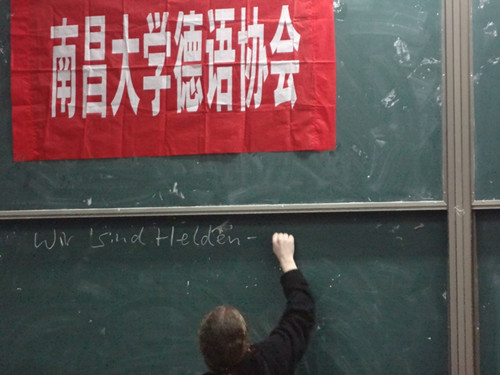 南昌大学德语协会
Wir sind Helden -